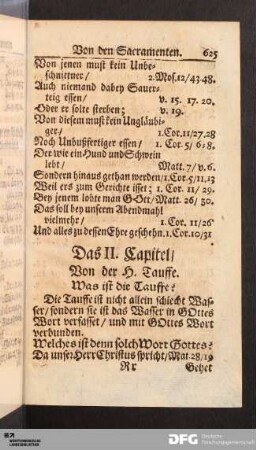 Von den Sacramenten. 625
Von jenen must kein Unbe-
schnittner/ 2. Mos. 12/43. 48.
Auch niemand dabey Sauer-
teig essen/ v. 15. 17. 20.
Oder er solte sterben; v. 19.
Von diesem must kein Ungläubi-
ger/ 1. Cor. 11/27. 28
Noch Unbußfertiger essen/ 1. Cor. 5/6. 8.
Der wie ein Hund und Schwein
lebt/ Matt. 7/v. 6.
Sondern hinaus gethan werden/1. Cor. 5/11. 13
Weil ers zum Gerichte isset; 1. Cor. 11/29.
Bey jenem lobte man GOtt/ Matt. 26/30.
Das soll bey unserm Abendmahl
vielmehr/ 1. Cor. 11/26
Und alles zu dessen Ehre geschehn. 1. Cor. 10/31
Das II. Capitel/
Von der H. Tauffe.
Was ist die Tauffe?
Die Tauffe ist nicht allein schlecht Was-
ser/ sondern sie ist das Wasser in GOttes
Wort verfasset/ und mit GOttes Wort
verbunden.
Welches ist denn solch Wort Gottes?
Da unser Herr Christus spricht/Mat. 28/19
Rr Gehet
SLUB
DFG Deutsche
Forschungsgemeinschaft